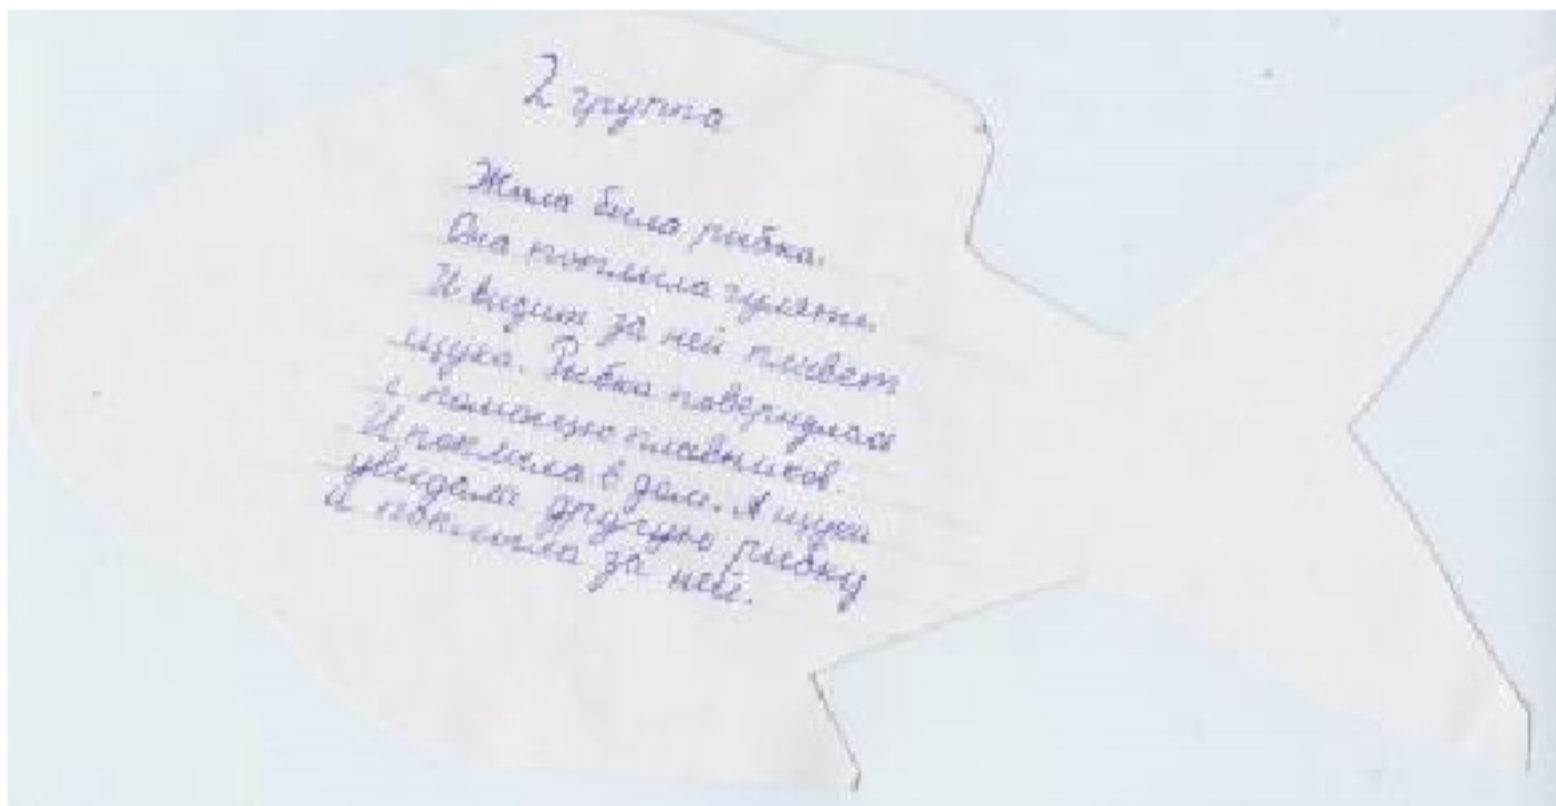 2 группа
Жила была рыбка.
Она поплыла гулять.
И видит за ней плывет
щука. Рыбка повернулась
с помощью плавников.
И поплыла в дом. А щука
увидела другую рыбку
и поплыла за ней.